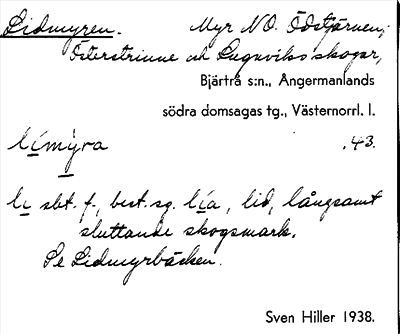 Lidmyren. Myr NO. Ödstjärnen;
Österstrinne och Lugnviks skogar,
Bjärtrå s:n., Ångermanlands
södra domsagas tg., Västernorrl. l.
límỳra .43.
li sbt. f., best. sg. lía, lid, långsamt
sluttande skogsmark.
Se Lidmyrbäcken.
Sven Hiller 1938.